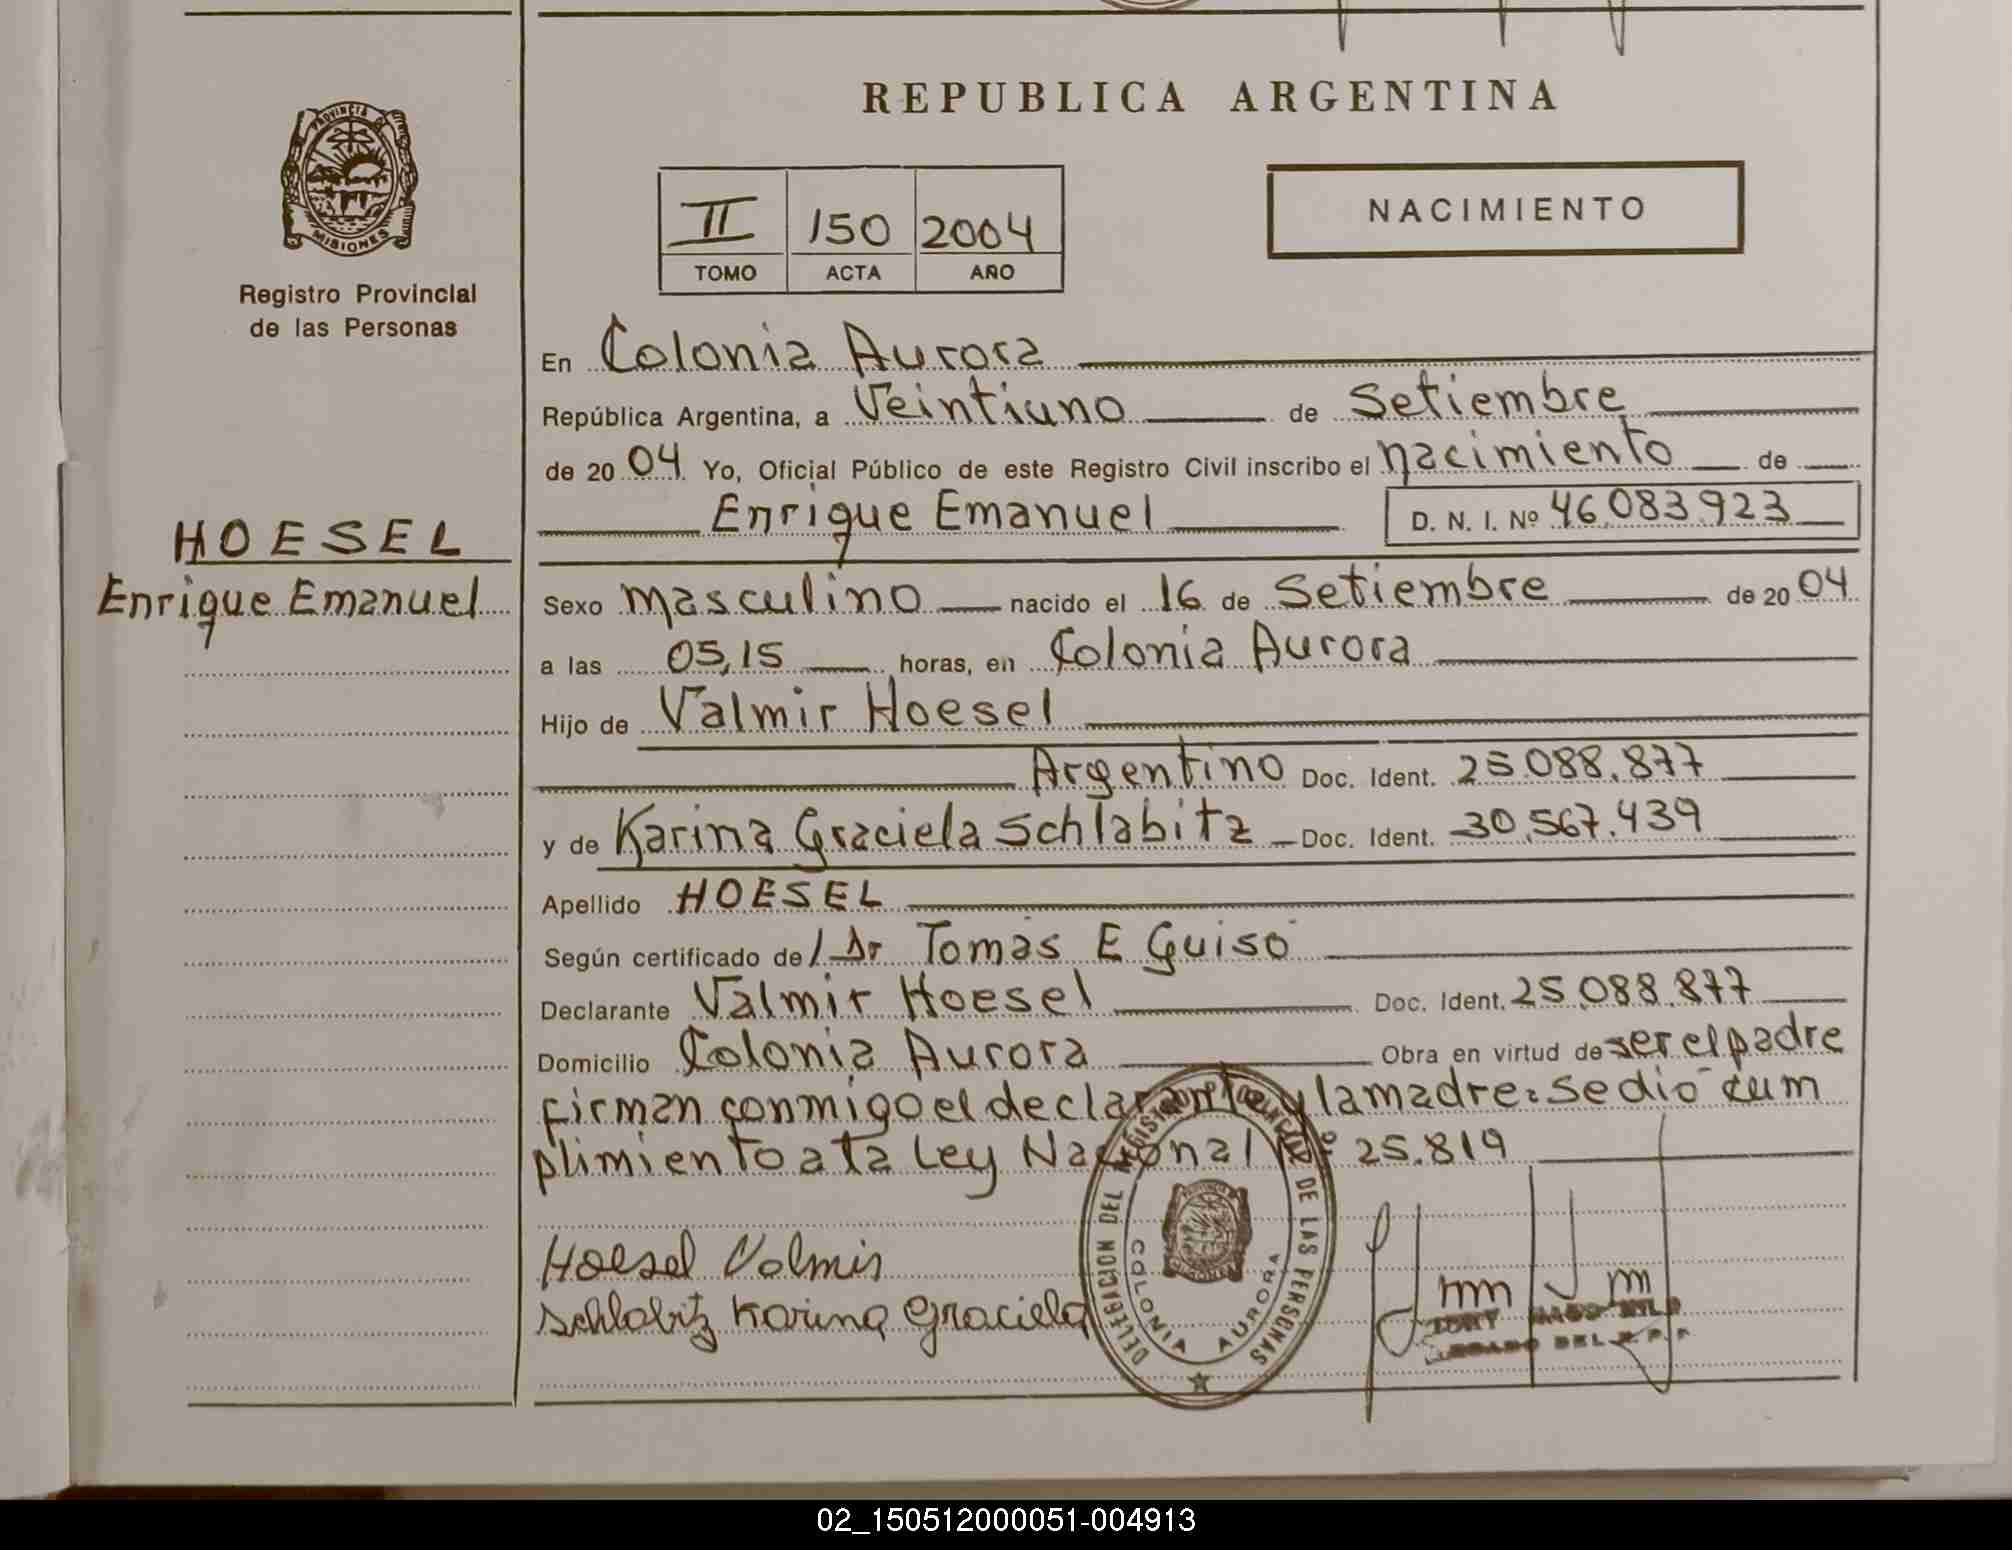 REPUBLICA ARGENTINA
PROVINCIA DE
MISIONES
Registro Provincial
de las Personas
II 150 2004
TOMO ACTA AÑO
NACIMIENTO
En Colonia Aurora
República Argentina, a Veintiuno de Setiembre
de 2004 Yo, Oficial Público de este Registro Civil inscribo el nacimiento de
Enrique Emanuel D. N. I. Nº 46.083.923
HOESEL
Enrique Emanuel
Sexo masculino nacido el 16 de Setiembre de 2004
a las 05,15 horas, en Colonia Aurora
Hijo de Valmir Hoesel
Argentino Doc. Ident. 25.088.877
y de Karina Graciela Schlabitz Doc. Ident. 30.567.439
Apellido HOESEL
Según certificado de/ Dr Tomás E Guiso
Declarante Valmir Hoesel Doc. Ident. 25.088.877
Domicilio Colonia Aurora Obra en virtud de ser el padre
firman conmigo el declarante y la madre: se dió cum
plimiento a la Ley Nacional Nº 25.819
Hoesel Valmir
Schlabitz Karina Graciela
DELEGACION DEL REGISTRO PROVINCIAL DE LAS PERSONAS
COLONIA AURORA
DEL R.P.P.
02_150512000051-004913